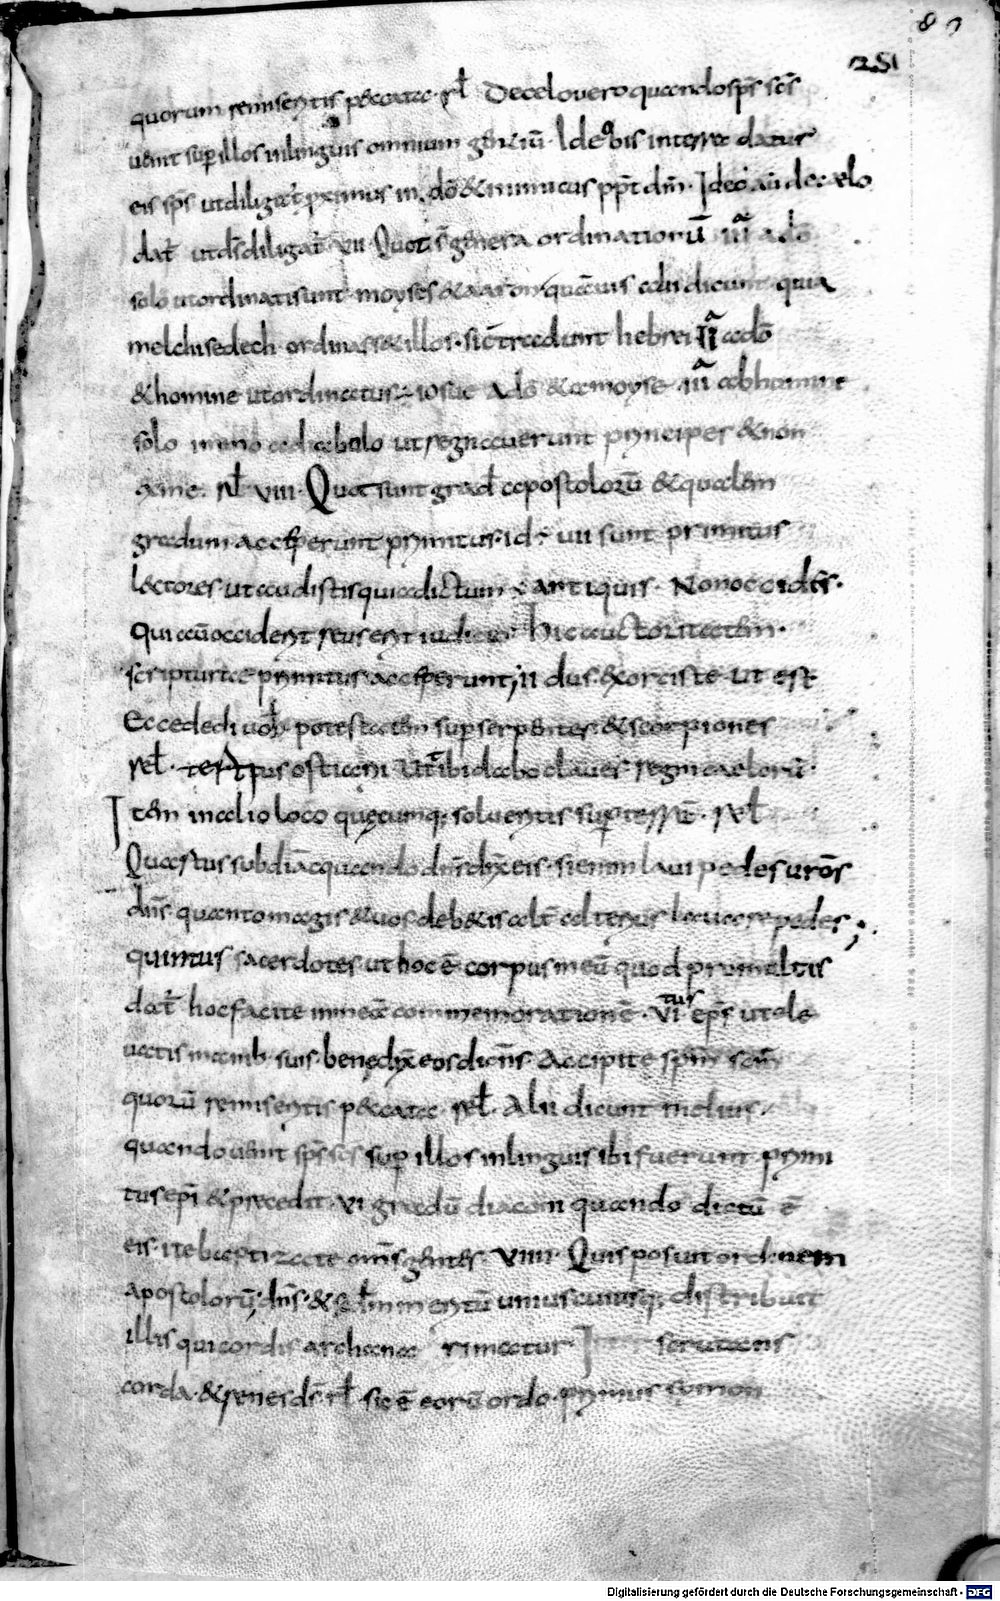 89
251
quorum remiseritis peccata · rł Decelo vero quando sps̄ scs̄
uenit sup illos in linguis omnium gentiū · Ideo bis in terra datur
eis sps̄ ut diligat̄ pximus in dō & inimicus ppt dm̄ · Ideo aū de caelo
dat̄ ut ds̄ diligat̄ VII Quot s̄ genera ordinatiorū IIII a dō
solo ut ordinati sunt moyses & aaron quāuis alii dicunt quia
melchisedech ordinass& illos · sic̄ tradunt hebrei II a dō
& homine ut ordinatus ÷ iosue A dō & a moyse · III ab homine
solo immo a diabolo ut regnauerunt principes & non
ex me · rł VIII · Quot sunt grad̄ apostolorū & qualem
gradum acceperunt primitus · id ÷ uii sunt primitus
lectores ut audistis quia dictum ÷ antiquis · Non occides ·
Qui aū occiderit reus erit iudicio hic auctoritatem ·
scripturae primitus acceperunt ; II dus exorciste ut est
Ecce dedi uob̄ potestatem sup serpentes & scorpiones
rel̄ · tertius osticarii Ut tibi dabo claues regni caelorū ·
Item in alio loco quęcumq; solueritis sup terrā · rel̄
Quartus subdiac quando dn̄s dix̄ eis · si enim laui pedes uros̄
dn̄s quanto magis & uos deb&is alt̄ alterius lauare pedes ;
quintus sacerdotes ut hoc ē corpus meū quod pro multis
dat̄ hoc facite in meā commemorationē · VItus eps̄ ut ele
uatis manib · suis · benedix̄ eos dicn̄s · Accipite spm̄ scm̄
quorū remiseritis peccata rel̄ · Alii dicunt melius
quando uenit sps̄ scs sup illos in linguis ibi fuerunt primi
tus epī & praecedit · VI gradū diaconi quando dictū ē
eis · ite baptizate om̄s gentes · VIIII · Quis posuit ordinem
apostolorū ; dn̄s · & sedm meritū unius cuiusq; distribuit
illis qui cordis archana rimatur scrutans
corda · & renes ds̄ · rł sic ē eorū ordo · primus simon
Digitalisierung gefördert durch die Deutsche Forschungsgemeinschaft - DFG